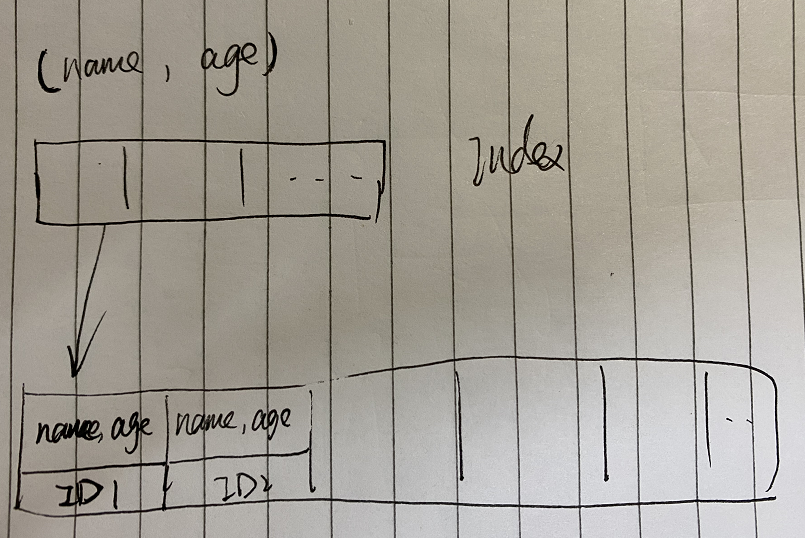 (name, age)
Index
- - -
name, age name, age - -
ID1 ID2